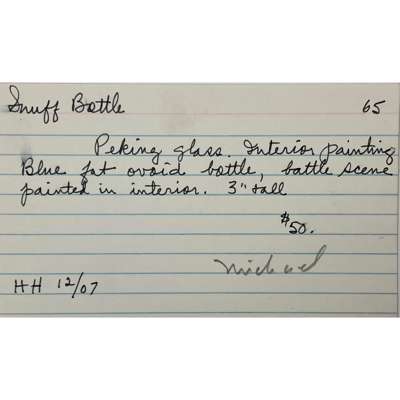 Snuff Bottle 65
Peking glass. Interior painting
Blue fat ovoid bottle, battle scene
painted in interior. 3" tall
$50.
Michael
HH 12/07